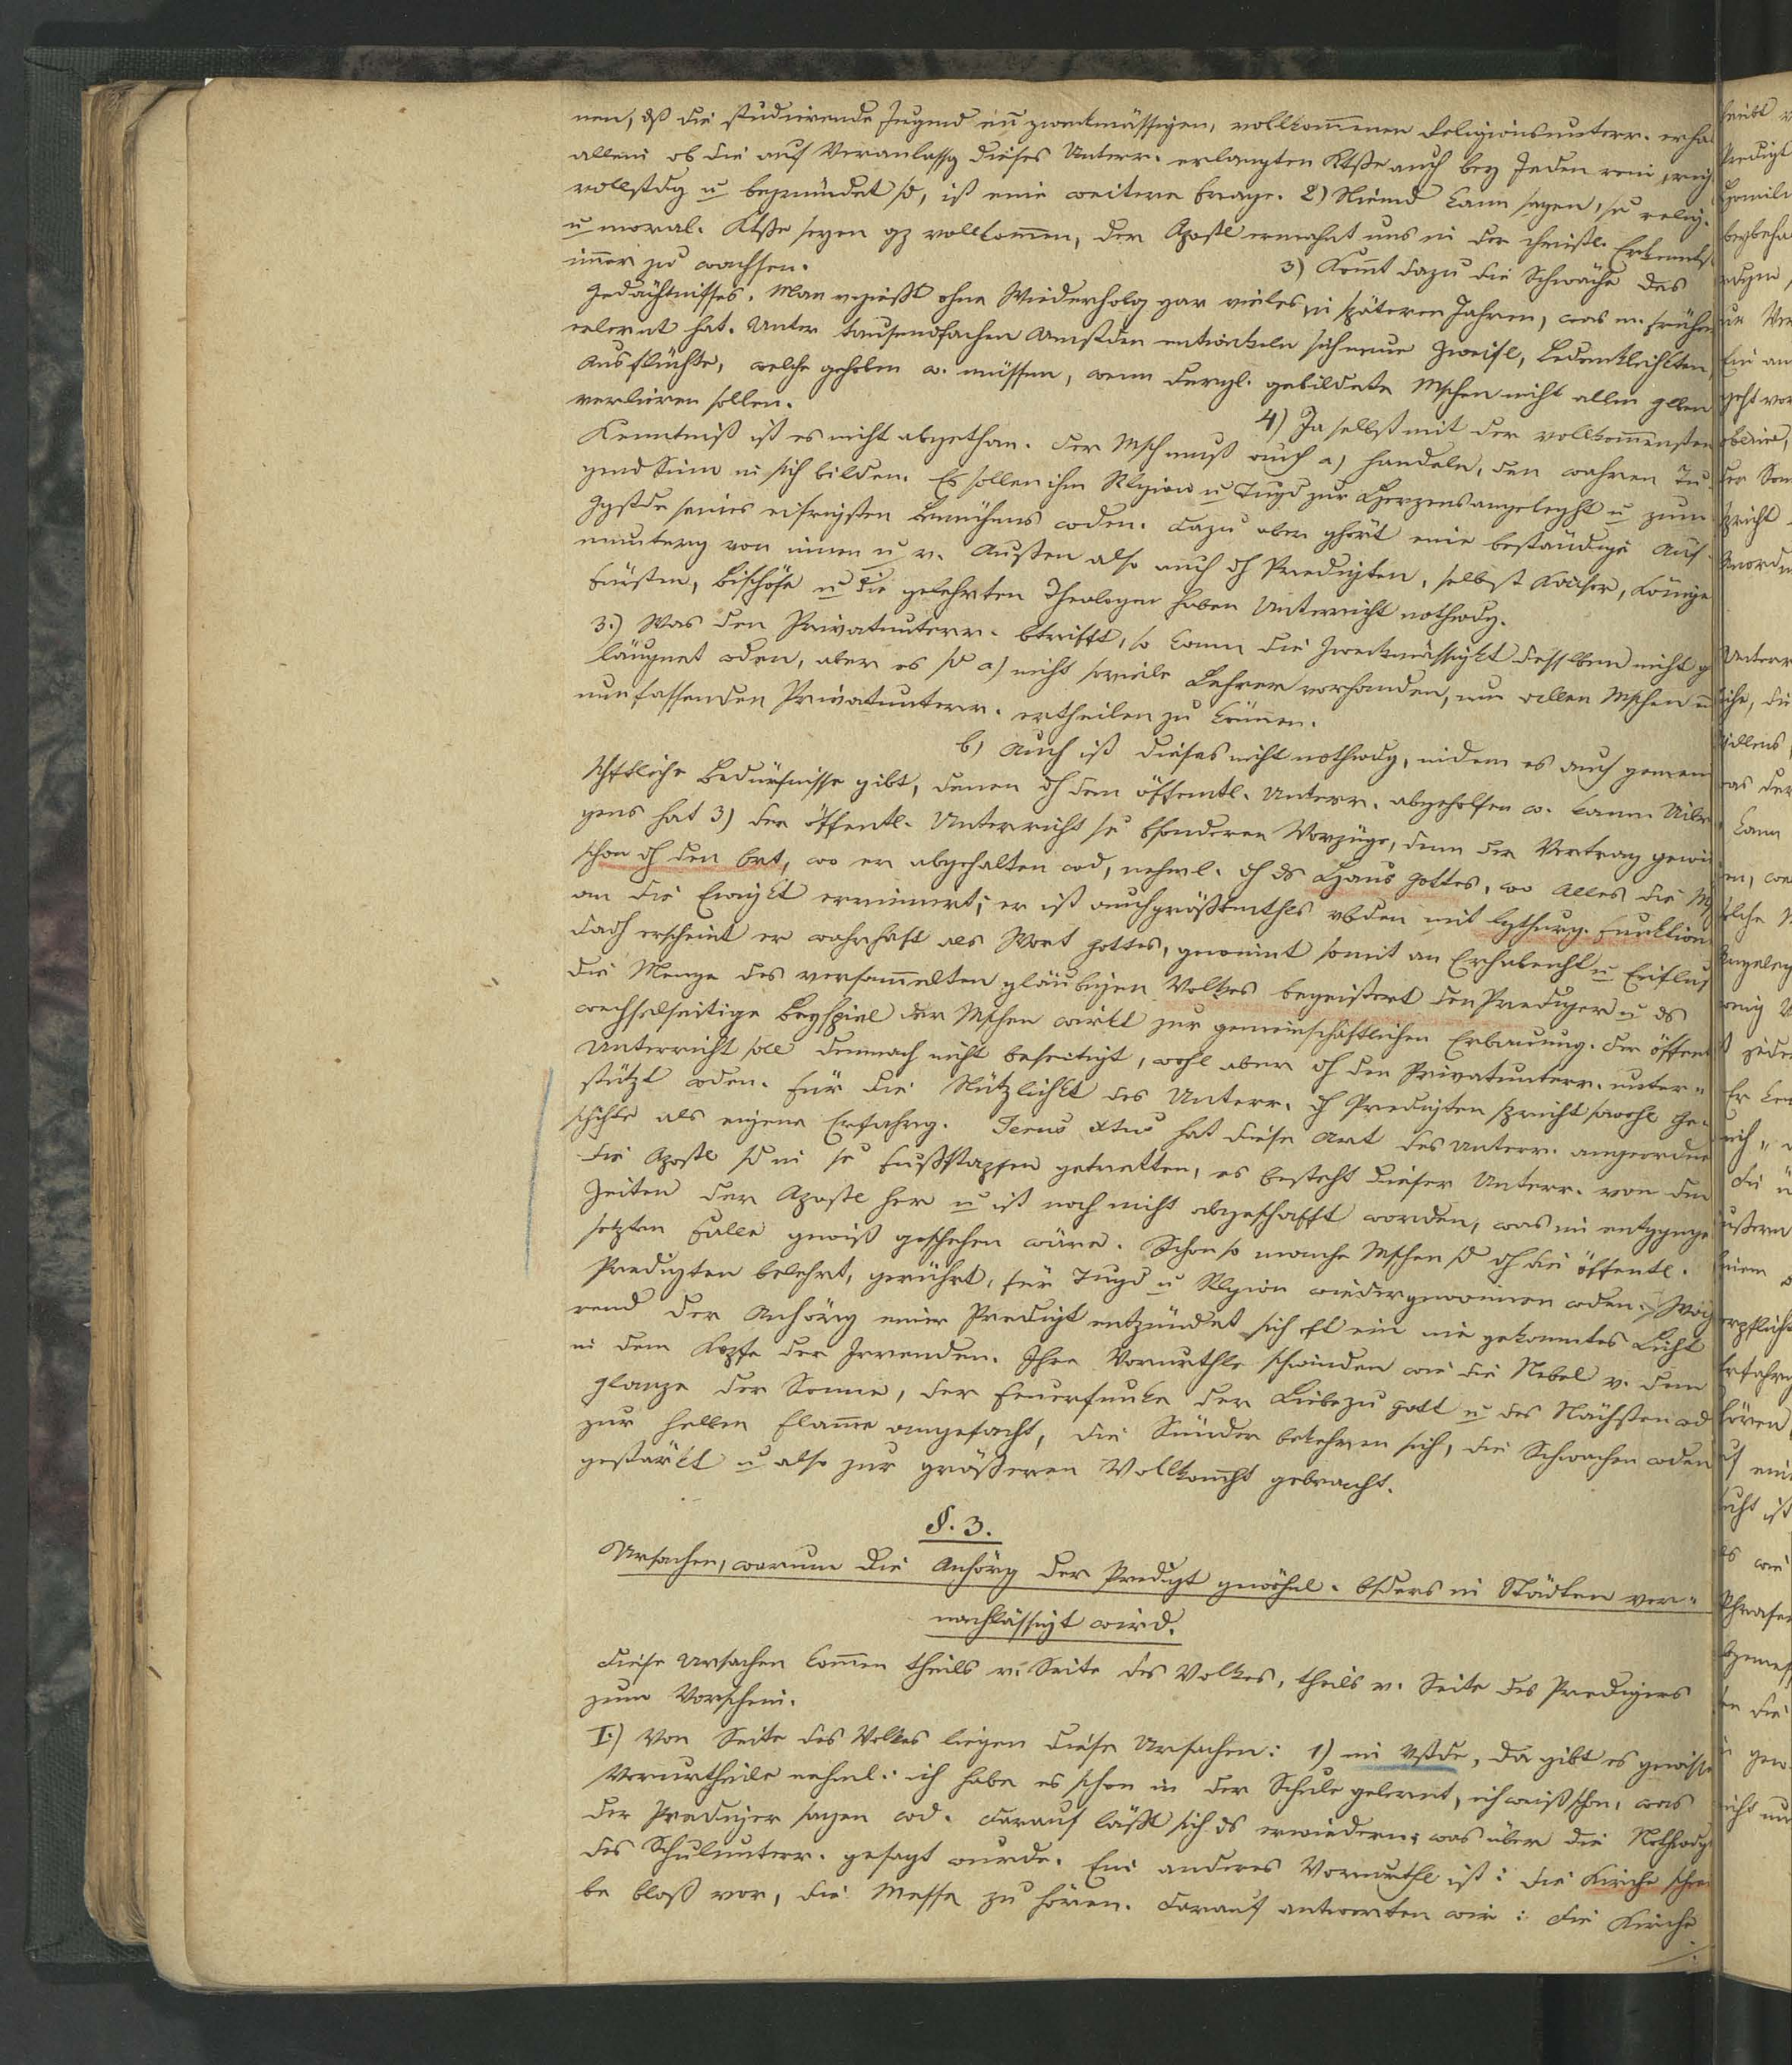 nen, dß die studierende Jugend ein zweckmässigen, vollkommenen Religionsunterr. erha
allein ob die auf Veranlassg dieses Unterr. erlangten Ktße auch bey Jeden rein, rich
vollstdg u begründet sd, ist eine weitere Frage. 2) Niemd kann sagen, se relig.
u moral. Ktße seyen gz vollkommen, der Apostl ermahnt uns in der christl. Erkenntß
immer zu wachsen.
3) Kommt dazu die Schwäche des
Gedächtnisses. Man vergießt ohne Wiederholg gar vieles, in späteren Jahren, was m. früher
erlernt hat. Unter tausendfachen Umstden entwickeln sich neue Zweifl, Bedenklichkten,
Ausflüchte, welche gehoben w. müssen, wenn dergl. gebildete Mschen nicht allen Glben
verlieren sollen.
4) Ja selbst mit der vollkommensten
Kenntniß ist es nicht abgethan. Der Msch muß auch a) handeln, den wahren Tu-
gend Sinn in sich bilden. Es sollen ihm Rlgion u Tugd zur Herzensangeleght u zum
Ggstde seines eifrigsten Bemühens wden. Dazu aber ghört eine beständige Auf-
munterg von innen u v. Außen also auch dh Predigten, selbst Kaiser, Könige
Fürsten, Bischöfe u die gelehrten Theologen haben Unterricht nothwdg.
3.) Was den Privatunterr. btrifft, so kann die Zweckmässigkt desselben nicht g
läugnet wden, aber es sd a) nicht soviele Lehrer vorhanden, um allen Mschen ein
umfassenden Privatunterr. ertheilen zu können.
b) Auch ist dieses nicht nothwdg, indem es auch gemein
schftliche Bedürfnisse gibt, denen dh den öffentl. Unterr. abgeholfen w. kann. Uibr
gens hat 3) der öffentl. Unterricht se bsonderen Vorzüge, denn der Vortrag gewin
schon dh den Ort, wo er abgehalten wd, nehml. dh ds Haus Gottes, wo Alles die Msch
an die Ewigkt erinnert; er ist auch größtenthls vbden mit lythurg. Funktion
dadh erscheint er wahrhaft als Wort Gottes, gewinnt somit an Erhabenht u Einfluß
Die Menge des versammelten gläubigen Volkes begeistert den Prediger u ds
wechselseitige Beyspiel der Mschen wirkt zur gemeinschaftlichen Erbauung. Der öffentl
Unterricht soll demnach nicht beseitigt, wohl aber dh den Privatunterr. unter-
stützt wden. Für die Nützlichkt des Unterr. dh Predigten spricht sowohl Ge-
schichte als eigene Erfahrg. Jesus Xtus hat diese Art des Unterr. angeordnet
Die Apostl sd in se Fußstapfen getretten, es besteht dieser Unterr. von den
Zeiten der Apostl her u ist noch nicht abgeschafft worden, was im entggnge
setzten Falle gewiß geschehen wäre. Schon so manche Mschen sd dh die öffentl.
Predigten belehrt, gerührt, für Tugd u Rlgion wiedergewonnen wden. Wäh
rend der Anhörg einer Predigt entzündet sich oft ein nie gekanntes Licht
in dem Kopfe der Irrenden. Ihre Vorurthle schwinden wie die Nebel v. dem
Glanze der Sonne, der Feuerfunke der Liebe zu Gott u des Nächsten wd
zur hellen Flamme angefacht, die Sünder bekehren sich, die Schwachen wden
gestärkt u also zur größeren Vollkommht gebracht.
§. 3.
Ursachen, warum die Anhörg der Predigt gewöhnl. bsders in Städten ver-
nachlässigt wird.
Diese Ursachen kommen theils v. Seite des Volkes, theils v. Seite des Predigers
zum Vorschein.
I.) Von Seite des Volkes liegen diese Ursachen: 1) im Vstde, da gibt es gewisse
Vorurtheile nehml: ich habe es schon in der Schule gelernt, ich weiß schon, was
der Prediger sagen wd. Darauf läßt sich ds erwiedern: was über die Nothwdg
des Schulunterr. gesagt wurde. Ein anderes Vorurthl ist: die Kirche schrei
be bloß vor, die Messe zu hören. Darauf antworten wir: die Kirche